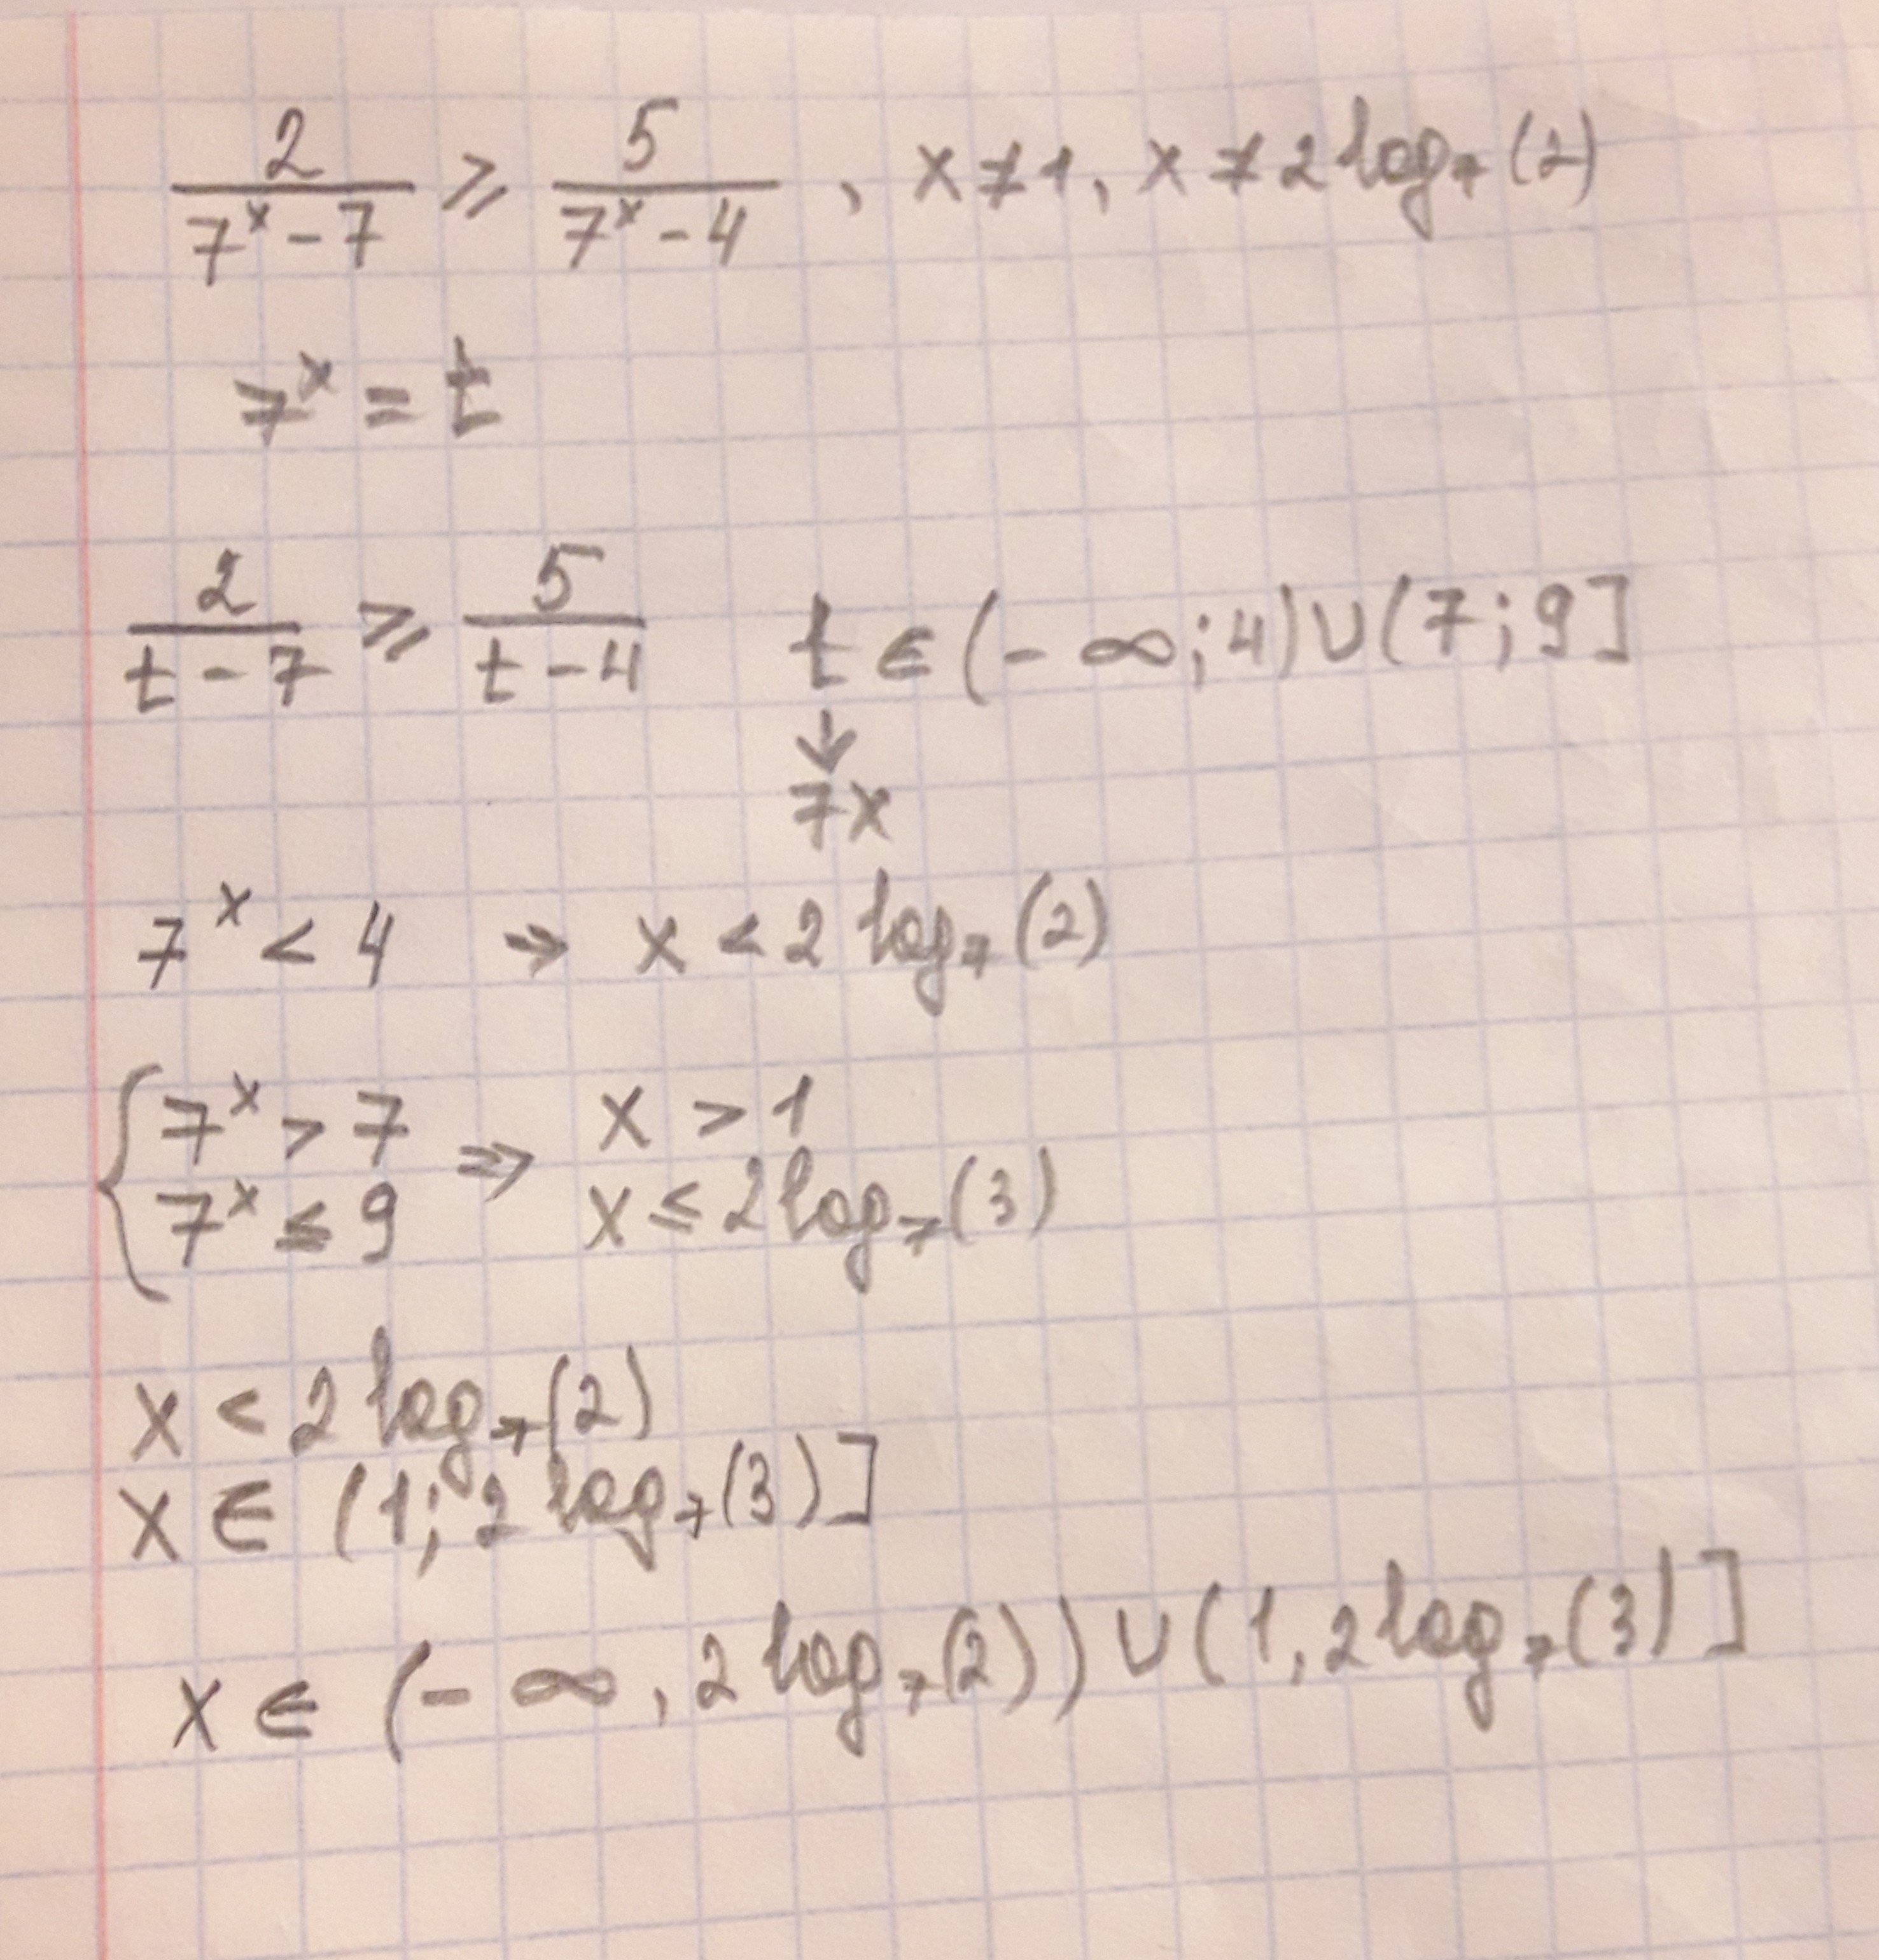 2/(7^x - 7) ≥ 5/(7^x - 4), x ≠ 1, x ≠ 2 log₇(2)
7^x = t
2/(t - 7) ≥ 5/(t - 4) t ∈ (-∞; 4) ∪ (7; 9]
↓
7x
7^x < 4 → x < 2 log₇(2)
{ 7^x > 7 ⇒ x > 1
7^x ≤ 9 x ≤ 2 log₇(3)
x < 2 log₇(2)
x ∈ (1; 2 log₇(3)]
x ∈ (-∞, 2 log₇(2)) ∪ (1, 2 log₇(3)]